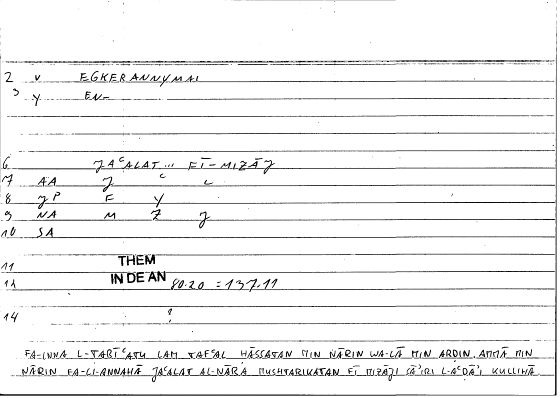 2 v EGKERANNYMAI
3 y EN-
6 JAᶜALAT... FĪ-MIZĀJ
7 AA J ᶜ L
8 JP F Y
9 NA M Z J
10 SA
11 THEM
12 IN DE AN 80.20 = 137.11
14 ?
FA-INNA L-TABĪᶜATU LAM TAFᶜAL HĀSSATAN MIN NĀRIN WA-LĀ MIN ARDIN. AMMĀ MIN
NĀRIN FA-LI-ANNAHĀ JAᶜALAT AL-NĀRA MUSHTARIKATAN FĪ MIZĀJI SĀ'IRI L-AᶜDĀ'I KULLIHĀ